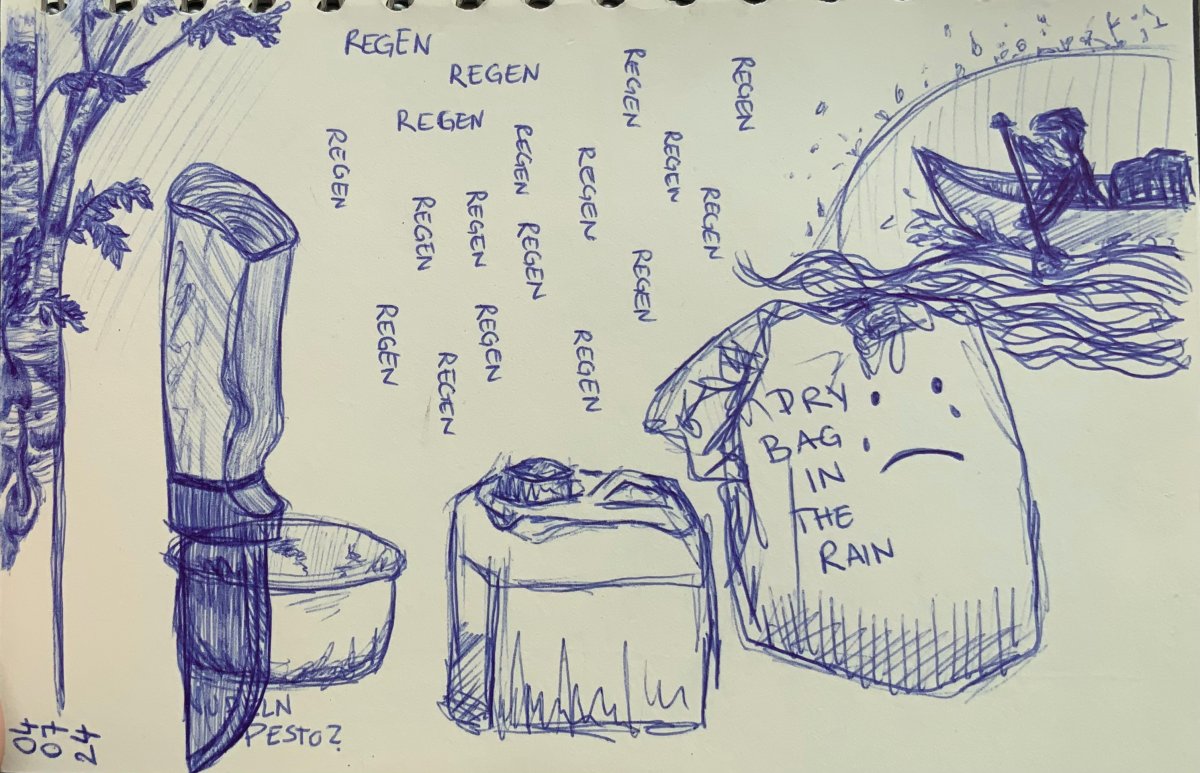 REGEN
REGEN
REGEN
REGEN
REGEN
REGEN
REGEN
REGEN
REGEN
REGEN
REGEN
REGEN
REGEN
REGEN
REGEN
REGEN
REGEN
REGEN
DRY
BAG
IN
THE
RAIN
PESTO?
04
07
24